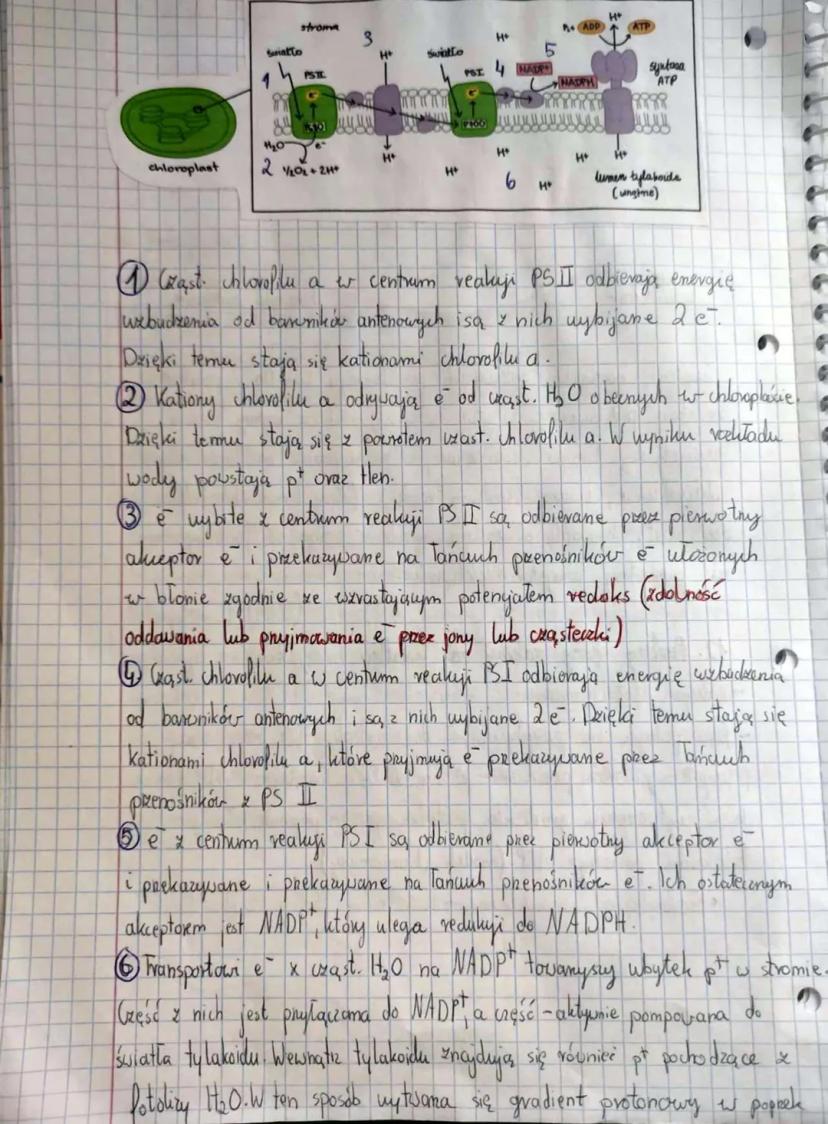 stroma
H⁺
Pi+ ADP
ATP
światło
3
H⁺
światło
H⁺
5
1
PSII
PSI
4
NADP⁺
NADPH
syntaza
ATP
e⁻
e⁻
P680
P700
H₂O
e⁻
2
½O₂ + 2H⁺
H⁺
H⁺
H⁺
H⁺
H⁺
6
H⁺
lumen tylakoidu
(wnętrze)
chloroplast
① Cząst. chlorofilu a w centrum reakcji PS II odbierają energię
wzbudzenia od barwników antenowych i są z nich wybijane 2 e⁻.
Dzięki temu stają się kationami chlorofilu a.
② Kationy chlorofilu a odrywają e⁻ od cząst. H₂O obecnych w chloroplaście.
Dzięki temu stają się z powrotem cząst. chlorofilu a. W wyniku rozkładu
wody powstają p⁺ oraz tlen.
③ e⁻ wybite z centrum reakcji PS II są odbierane przez pierwotny
akceptor e⁻ i przekazywane na łańcuch przenośników e⁻ ułożonych
w błonie zgodnie ze wzrastającym potencjałem redoks (zdolność
oddawania lub przyjmowania e⁻ przez jony lub cząsteczki)
④ Cząst. chlorofilu a w centrum reakcji PSI odbierają energię wzbudzenia
od barwników antenowych i są z nich wybijane 2e⁻. Dzięki temu stają się
kationami chlorofilu a, które przyjmują e⁻ przekazywane przez łańcuch
przenośników z PS II
⑤ e⁻ z centrum reakcji PSI są odbierane przez pierwotny akceptor e⁻
i przekazywane i przekazywane na łańcuch przenośników e⁻. Ich ostatecznym
akceptorem jest NADP⁺, który ulega redukcji do NADPH.
⑥ Transportowi e⁻ z cząst. H₂O na NADP⁺ towarzyszy ubytek p⁺ w stromie.
Część z nich jest przyłączana do NADP⁺, a część - aktywnie pompowana do
światła tylakoidu. Wewnątrz tylakoidu znajdują się również p⁺ pochodzące z
fotolizy H₂O. W ten sposób wytwarza się gradient protonowy w poprzek